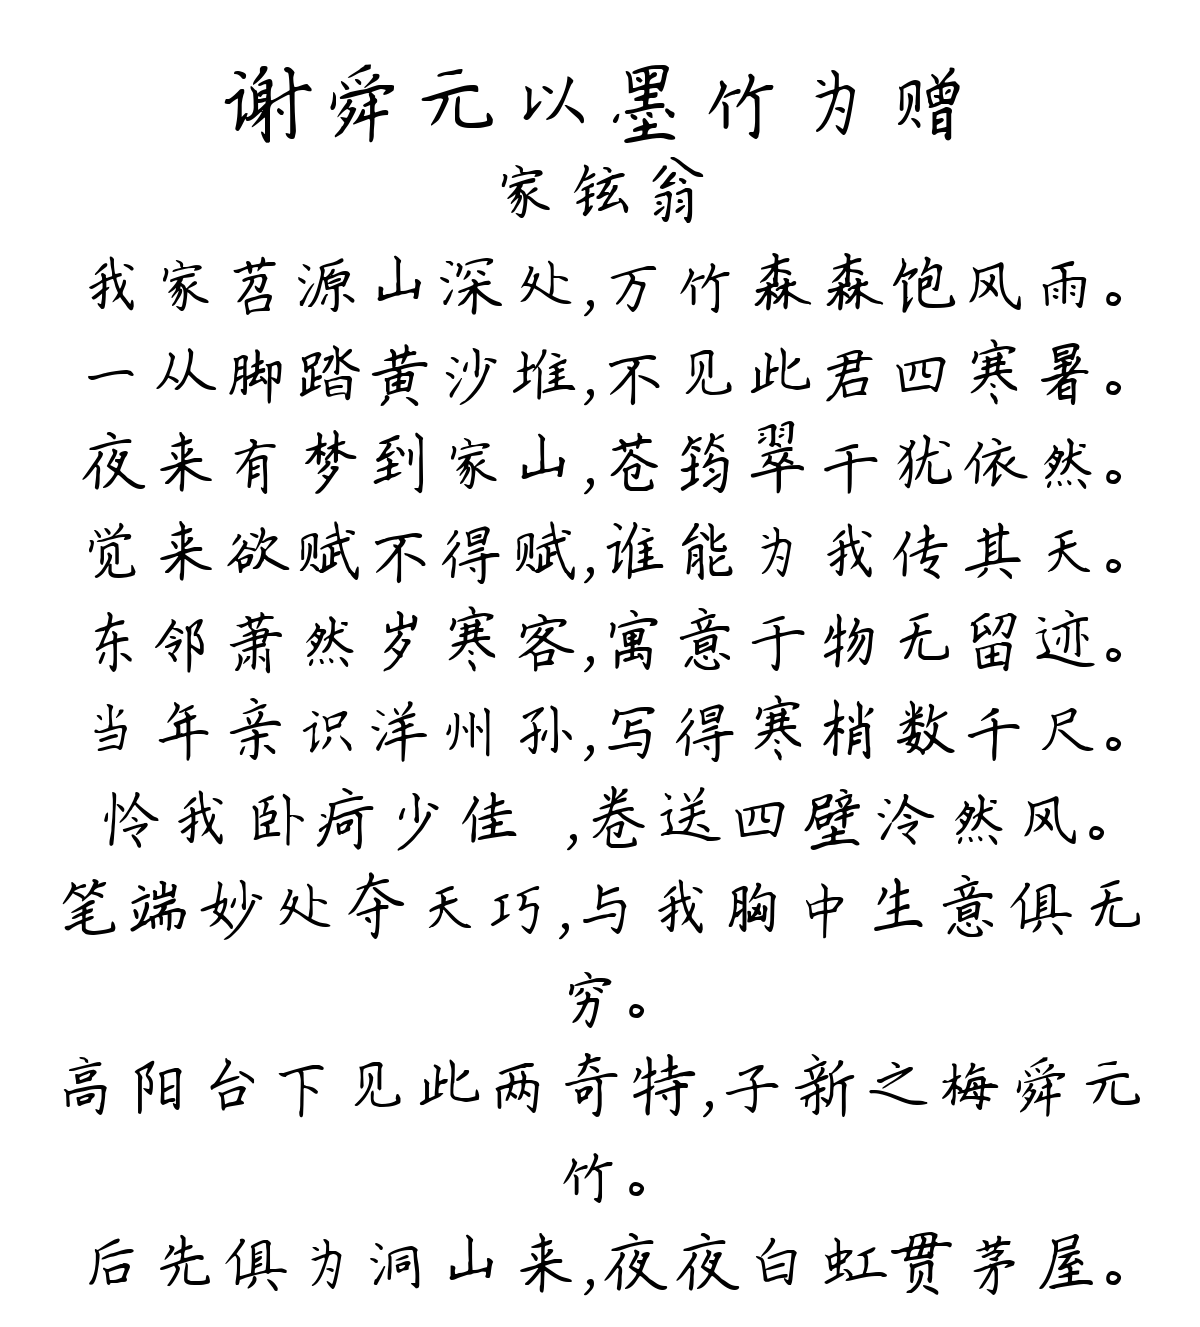 谢舜元以墨竹为赠
家铉翁
我家苕源山深处,万竹森森饱风雨。
一从脚踏黄沙堆,不见此君四寒暑。
夜来有梦到家山,苍筠翠干犹依然。
觉来欲赋不得赋,谁能为我传其天。
东邻萧然岁寒客,寓意于物无留迹。
当年亲识洋州孙,写得寒梢数千尺。
怜我卧疴少佳 ,卷送四壁泠然风。
笔端妙处夺天巧,与我胸中生意俱无
穷。
高阳台下见此两奇特,子新之梅舜元
竹。
后先俱为洞山来,夜夜白虹贯茅屋。